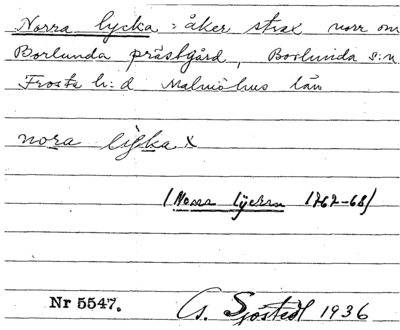 Norra lycka : åker strax norr om
Borlunda prästgård, Borlunda s:n
Frosta h:d Malmöhus län
nora lyka x
(Norra lyckan 1767-68)
Nr 5547. G. Sjöstedt 1936